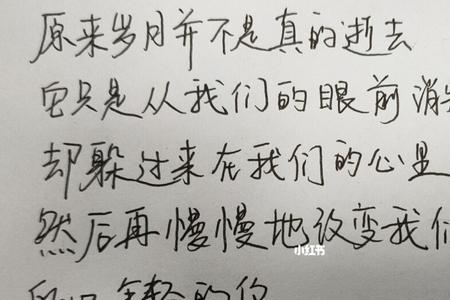 原来岁月并不是真的逝去
它只是从我们的眼前消失
却躲过来在我们的心里
然后再慢慢地改变我们
年轻的你
小红书